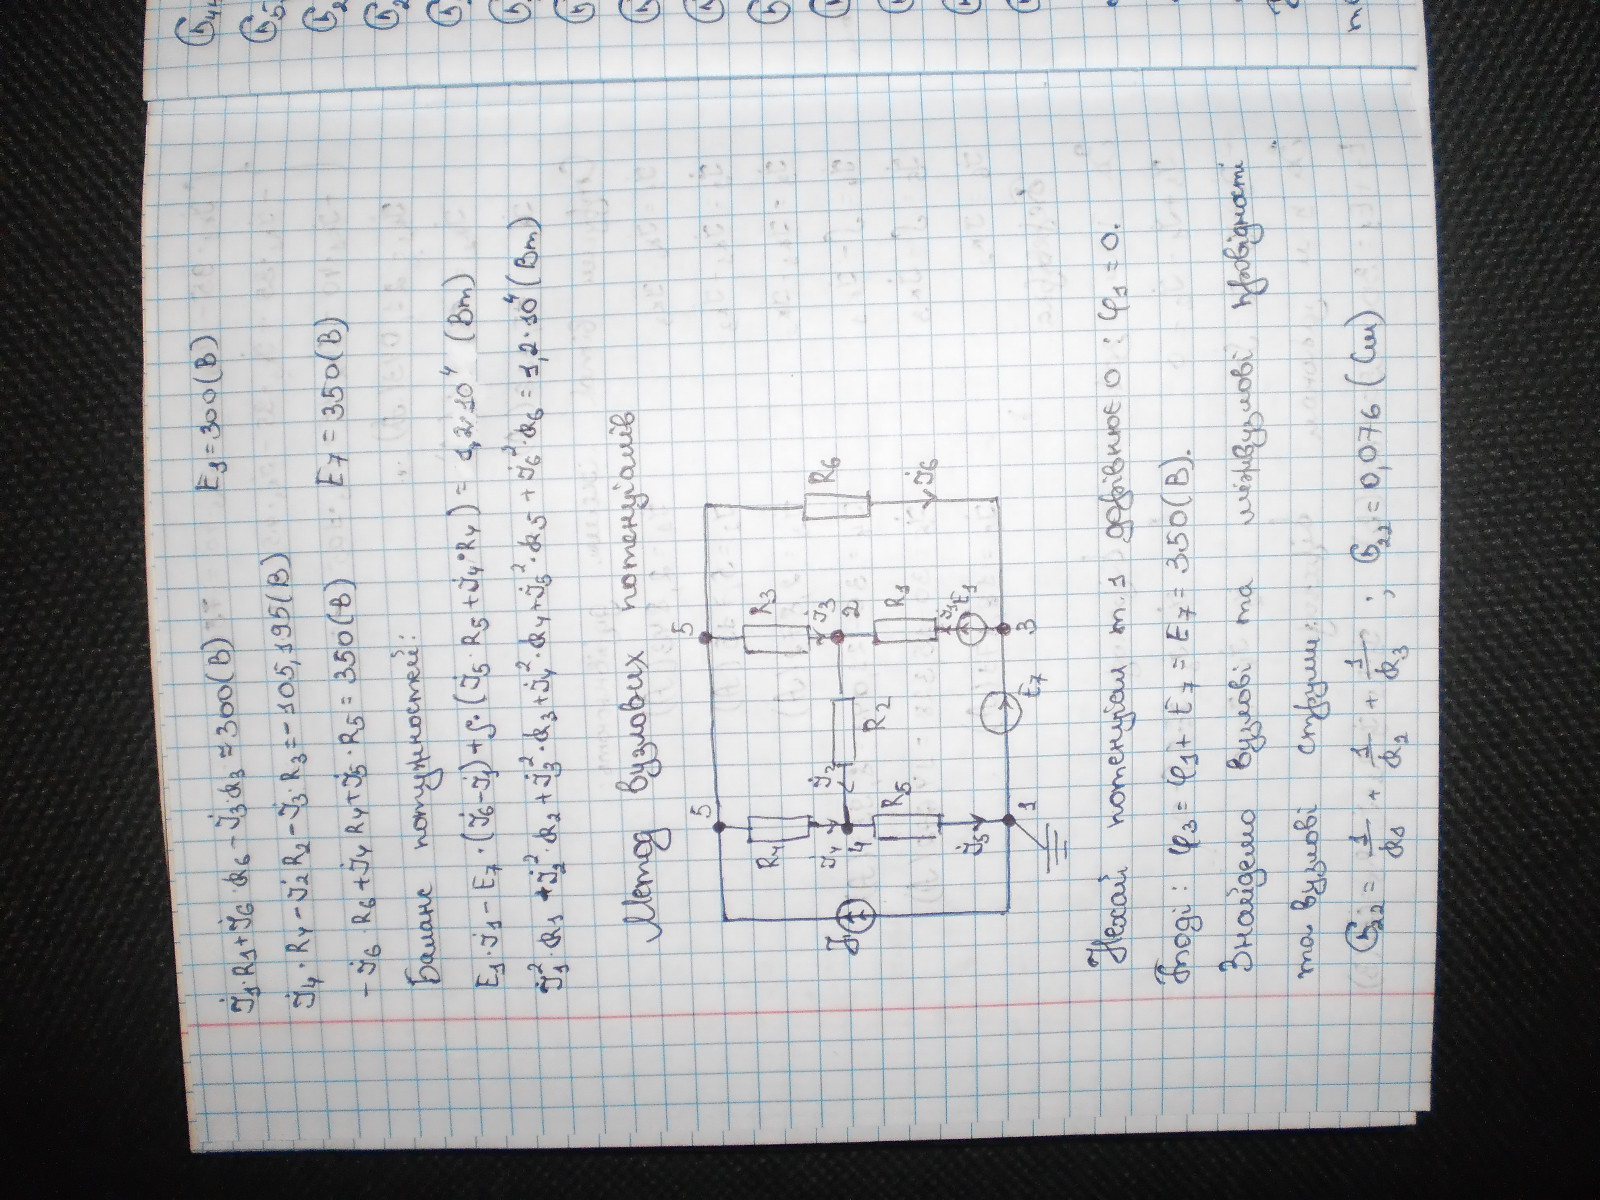 I₁·R₁+I₆·R₆-I₃R₃=300(В) E₁=300(В)
I₄·R₄-I₂R₂-I₃·R₃=-105,195(В)
-I₆·R₆+I₄R₄+I₅·R₅=350(В) E₇=350(В)
Баланс потужностей:
E₁·I₁-E₇·(I₆-I₁)+J·(I₅·R₅+I₄·R₄)=1,2·10⁴ (Вт)
I₁²·R₁+I₂²·R₂+I₃²·R₃+I₄²·R₄+I₅²·R₅+I₆²·R₆=1,2·10⁴(Вт)
Метод вузлових потенціалів
5 5
R₄ R₃ R₆
J I₄ 4 I₂ R₂ I₃ 2
R₅ R₁ I₆
I₅ I₁ E₁
1 E₇ 3
Нехай потенціал т.1 дорівнює 0: φ₁=0.
Тоді: φ₃=φ₁+E₇=E₇=350(В).
Знайдемо вузлові та міжвузлові провідності
та вузлові струми:
G₂₂=1/R₁+1/R₂+1/R₃; G₂₂=0,076(См)